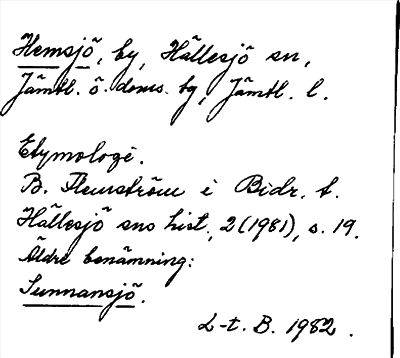 Hemsjö, by, Hällesjö sn,
Jämtl. ö. doms. tg, Jämtl. l.
Etymologi.
B. Flemström i Bidr. t.
Hällesjö sns hist., 2 (1981), s. 19.
Äldre benämning:
Sunnansjö.
L-t. B. 1982.